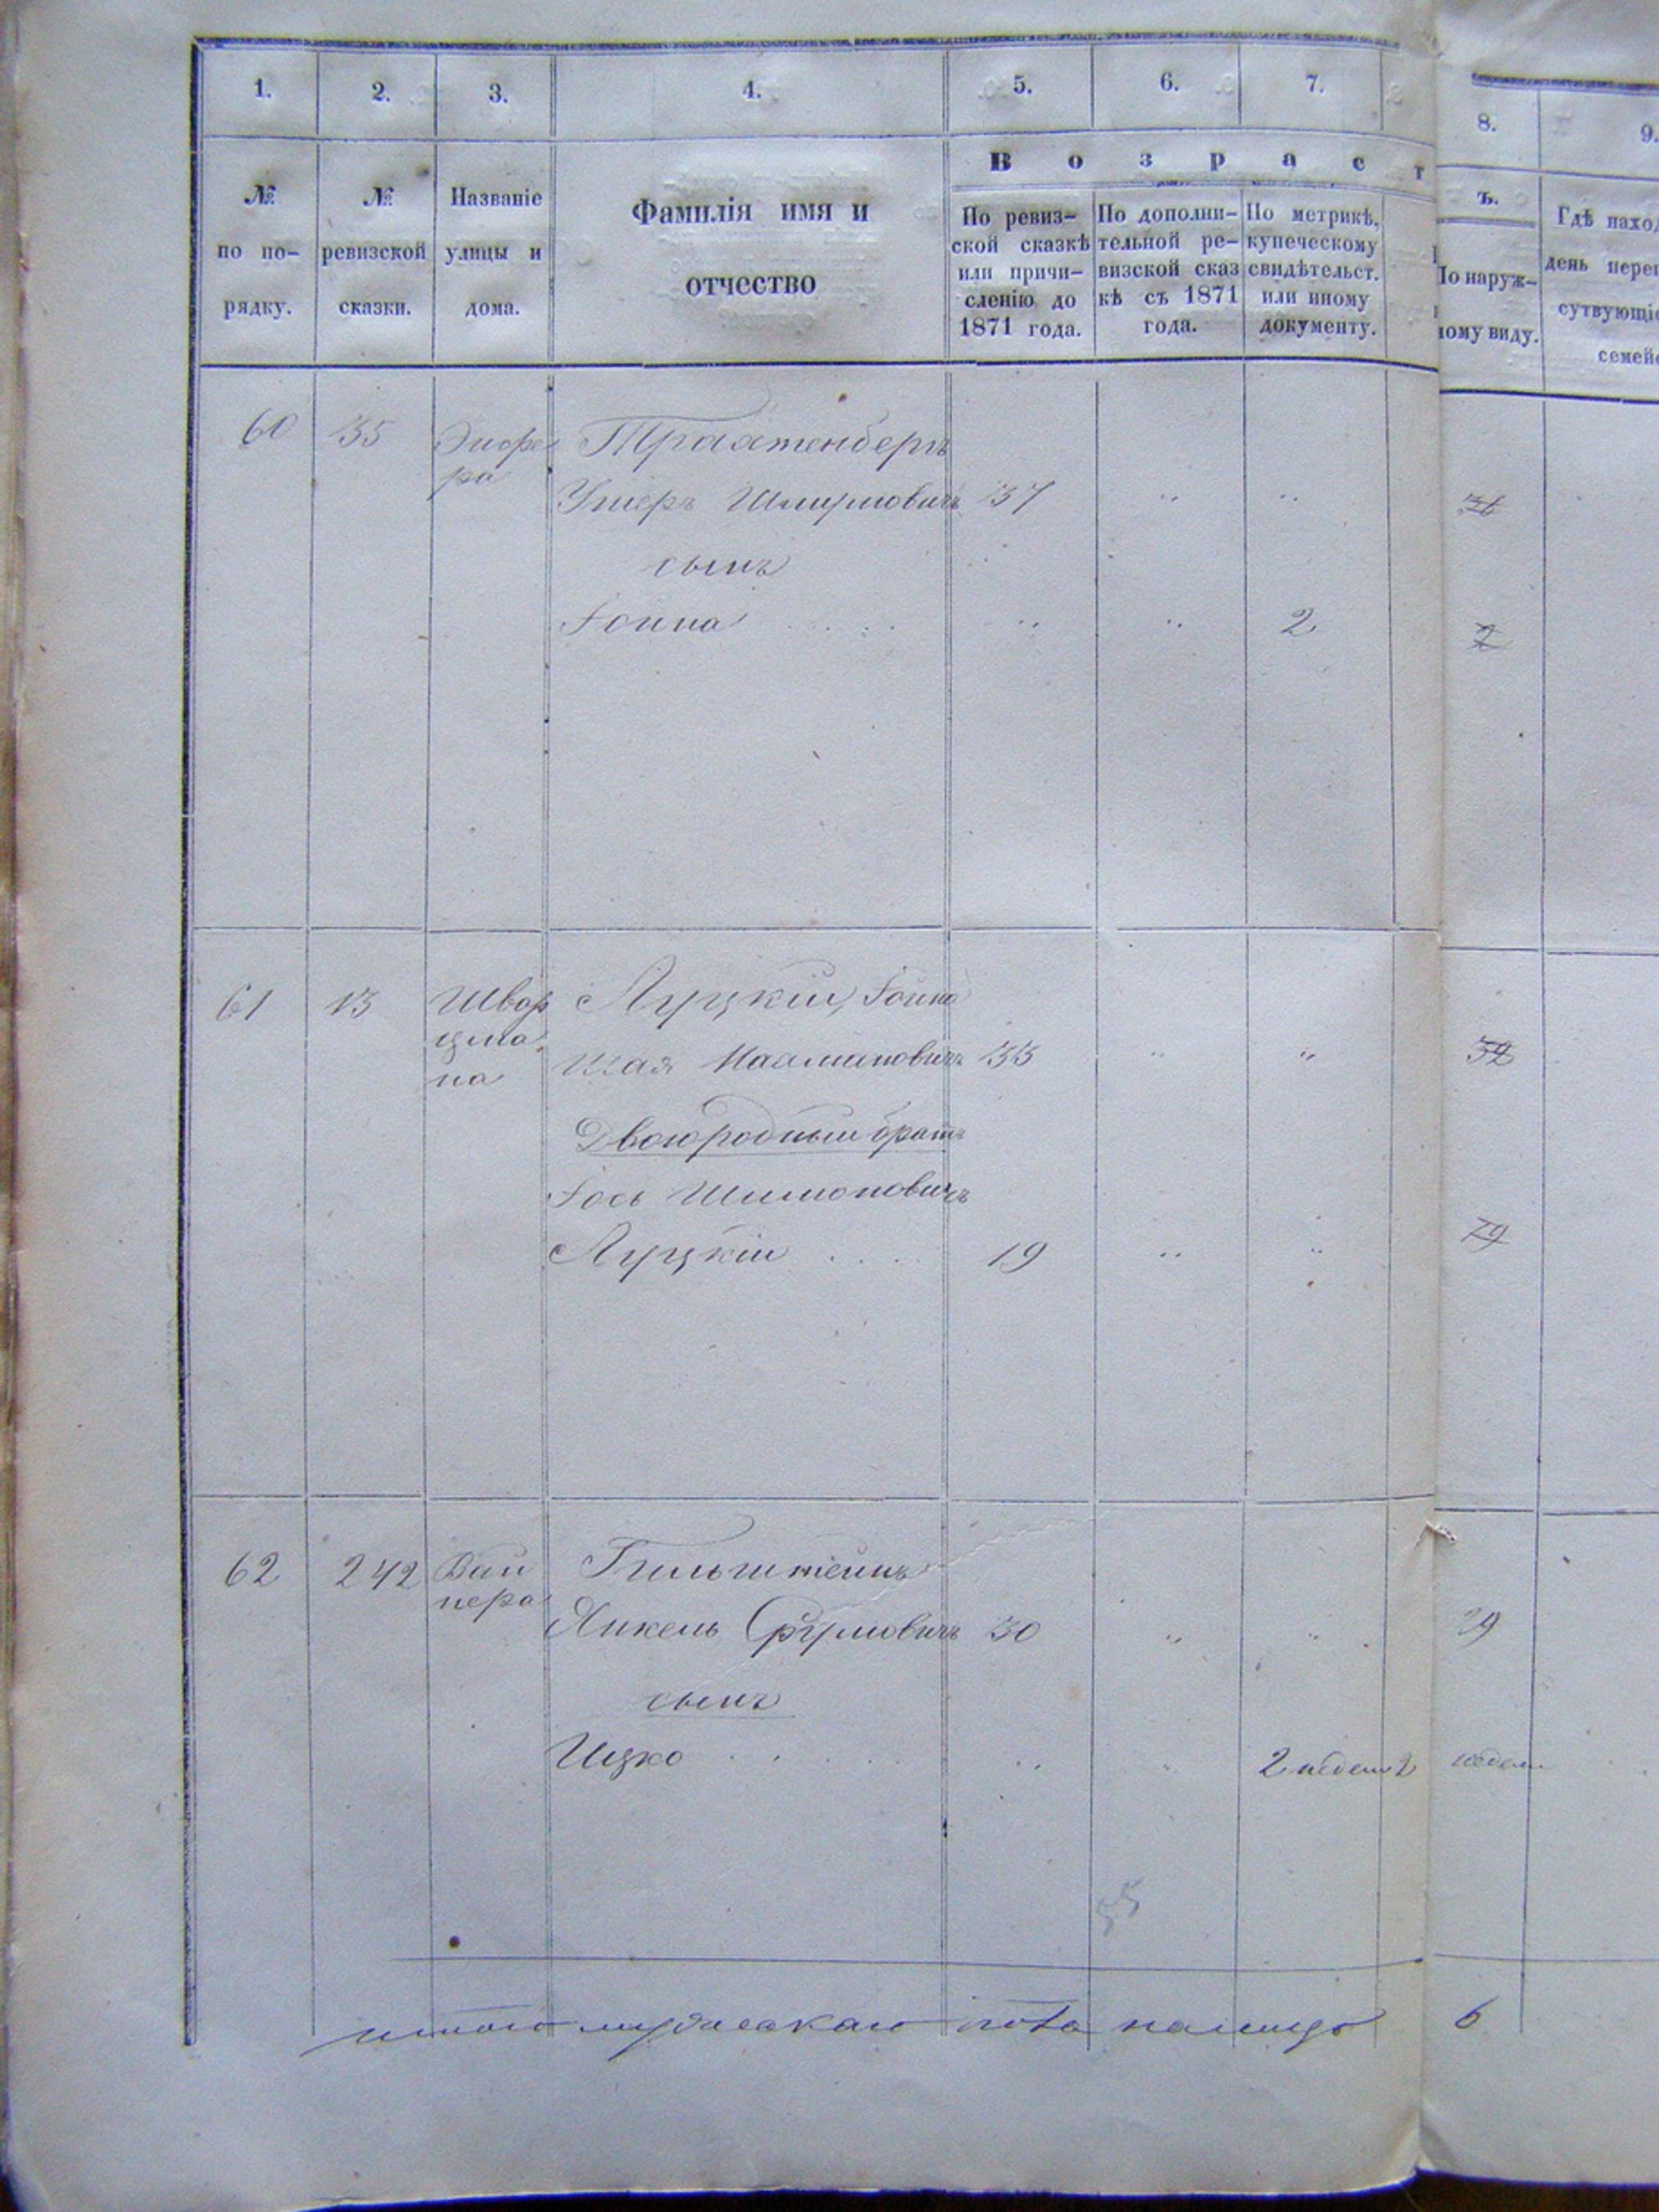 1. 2. 3. 4. 5. 6. 7. 8. 9.
В о з р а с т ъ.
№ по по-
рядку.
№ ревизской
сказки.
Названіе
улицы и
дома.
Фамилія имя и
отчество
По ревиз-
ской сказкѣ
или причи-
сленію до
1871 года.
По дополни-
тельной ре-
визской сказ
кѣ съ 1871
года.
По метрикѣ,
купеческому
свидѣтельст.
или иному
документу.
По наруж-
ному виду.
Гдѣ наход
день пере
сутвующіе
семей
60 35 Трахтенберъ
ра
Ушеръ Шмулювичъ 37 " "
сынъ
Іойна " " 2 2
61 13 Швар Луцкій, Іойна
цма
на Шая Нахмановичъ 33 " "
Двоюродный братъ
Іось Шимоновичъ
Луцкій 19 " " 19
62 242 Вай Гильштейнъ
нера
Янкель Сруловичъ 30 " " 29
сынъ
Ицко " " 2 недели 2 недели
55
итого мужескаго пола налицо 6